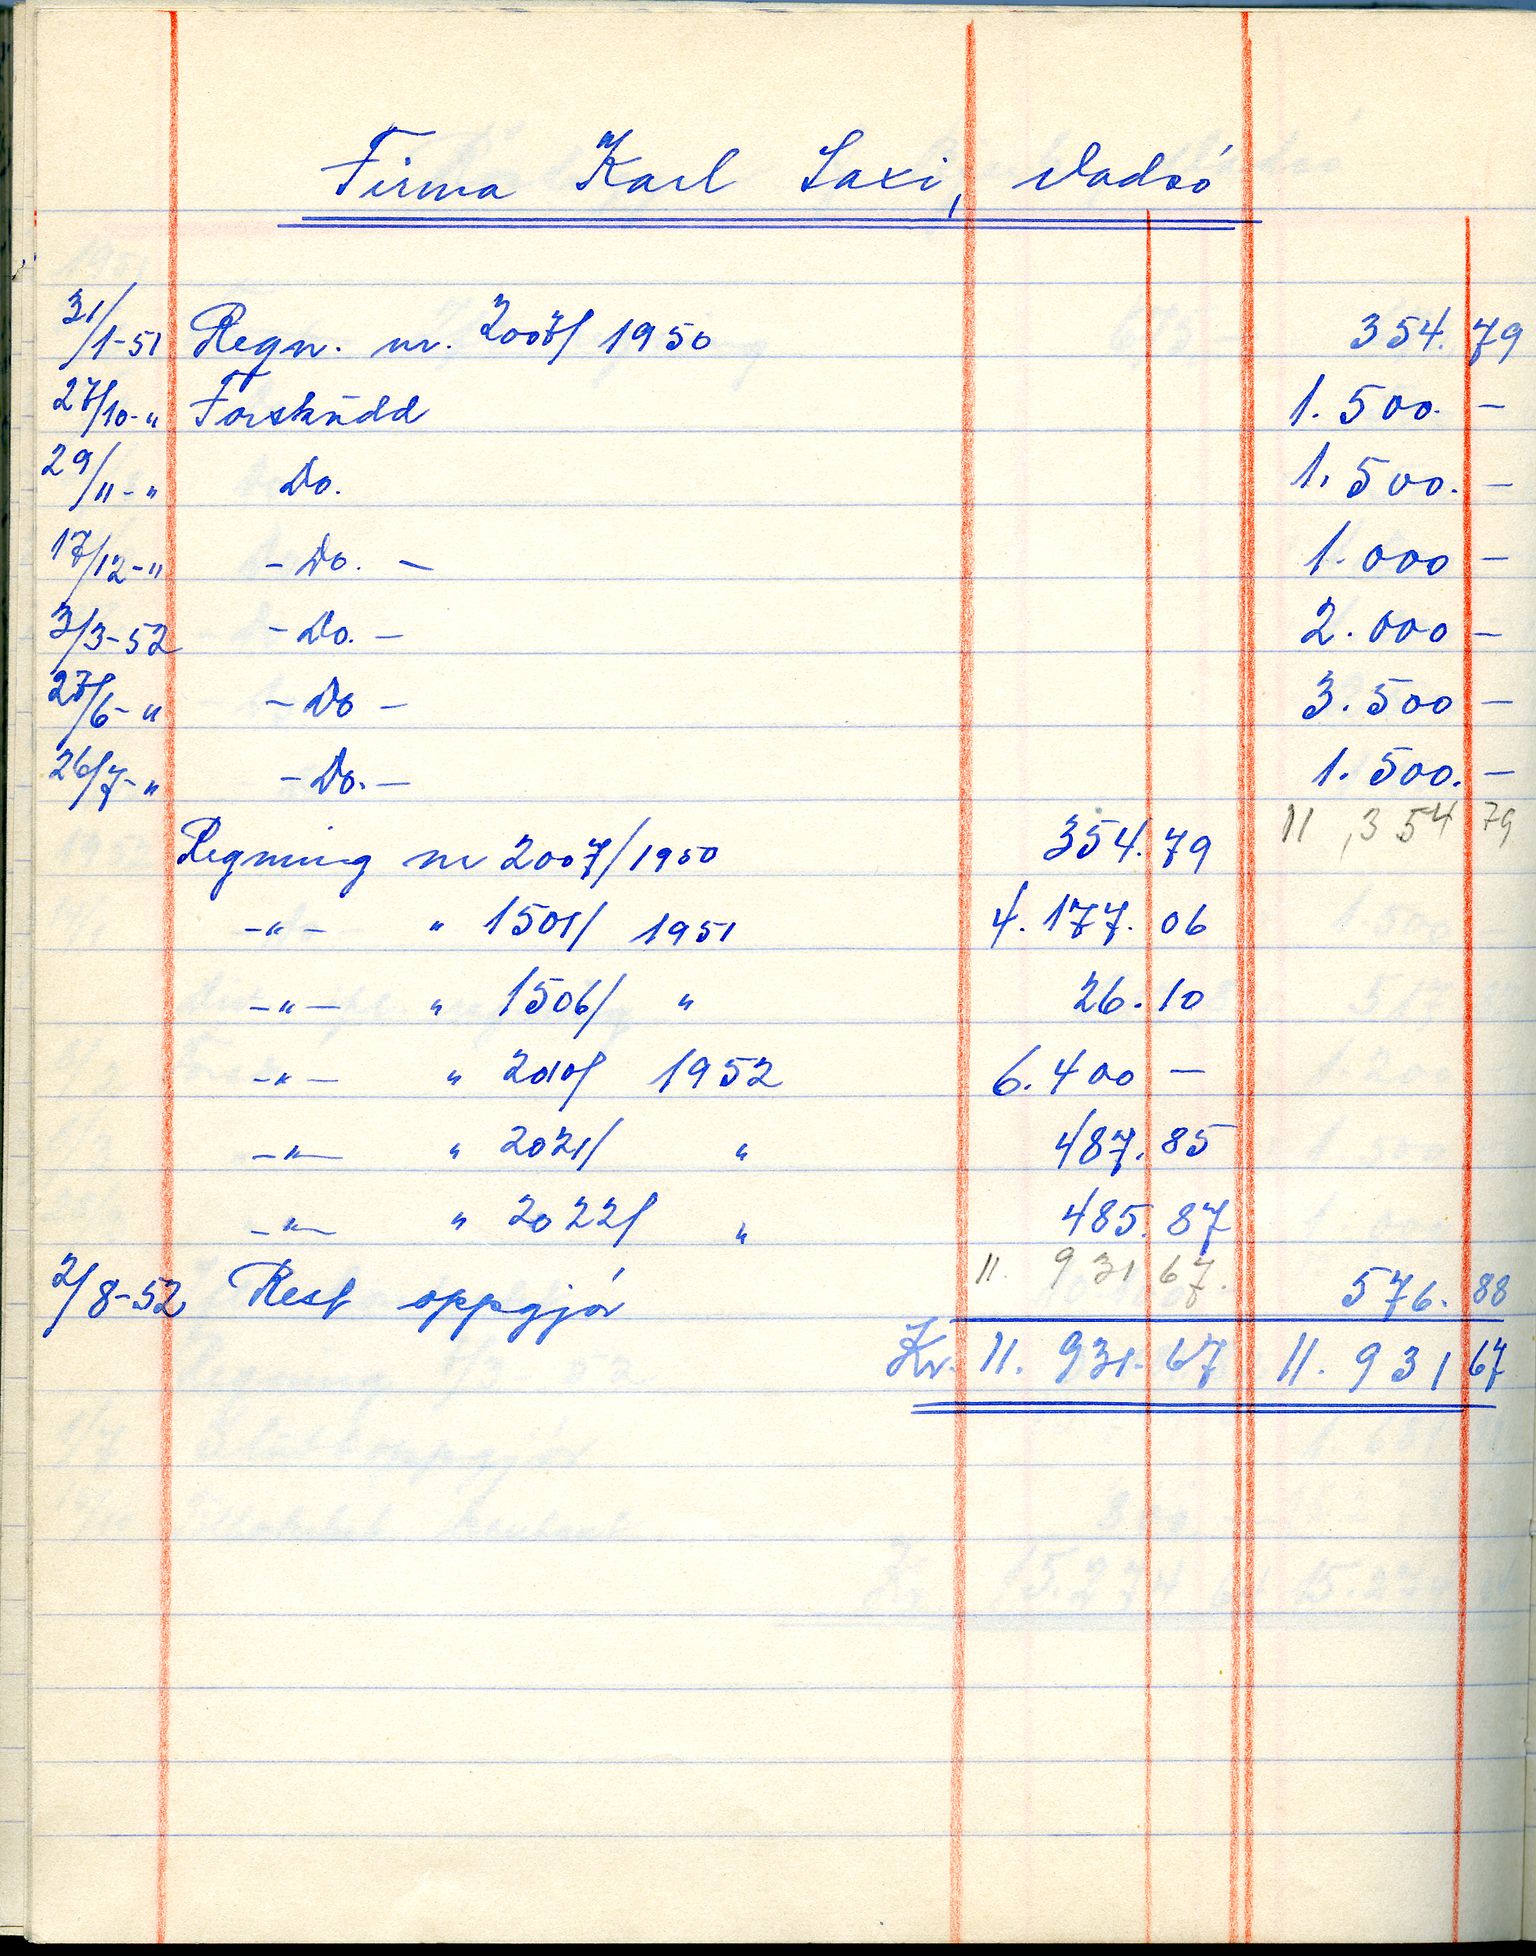 Firma Karl Saxi, Vadsö
31/1-51 Regn. nr. 2007/ 1950 354. 79
27/10-" Forskudd 1.500. —
29/11-" Do. 1.500. —
17/12-" - Do. - 1.000 —
3/3-52 - Do. - 2.000 —
27/6-" - Do - 3.500 —
26/7-" - Do. - 1.500. —
11,354 79
Regning nr 2007/1950 354. 79
-"- " 1501/ 1951 4.177. 06
-"- " 1506/ " 26. 10
-"- " 2010/ 1952 6.400 —
-"- " 2021/ " 487. 85
-"- " 2022/ " 485. 87
11. 931 67.
2/8-52 Rest oppgjör 576. 88
Kr. 11. 931. 67 11. 931 67